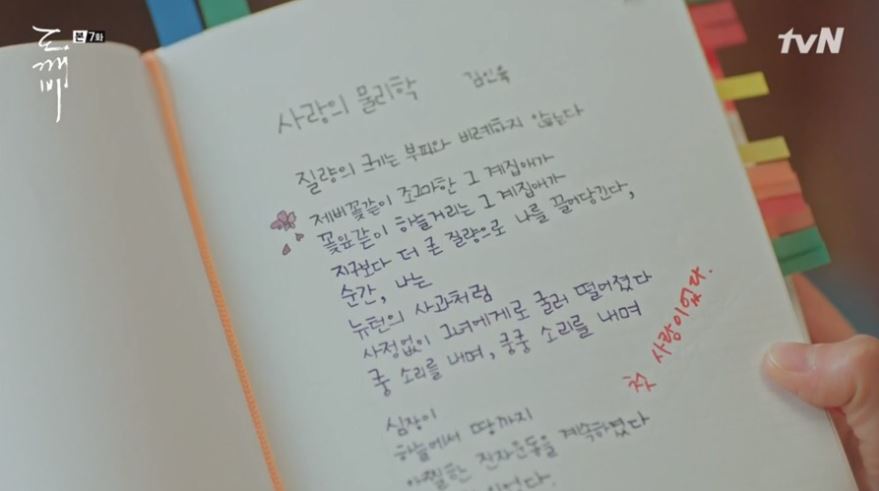 도깨비
본 7화
tvN
사랑의 물리학 김인육
질량의 크기는 부피와 비례하지 않는다
제비꽃같이 조그마한 그 계집애가
꽃잎같이 하늘거리는 그 계집애가
지구보다 더 큰 질량으로 나를 끌어당긴다,
순간, 나는
뉴턴의 사과처럼
사정없이 그녀에게로 굴러 떨어졌다
쿵 소리를 내며, 쿵쿵 소리를 내며
심장이
하늘에서 땅까지
아찔한 진자운동을 계속하였다
첫 사랑이었다.